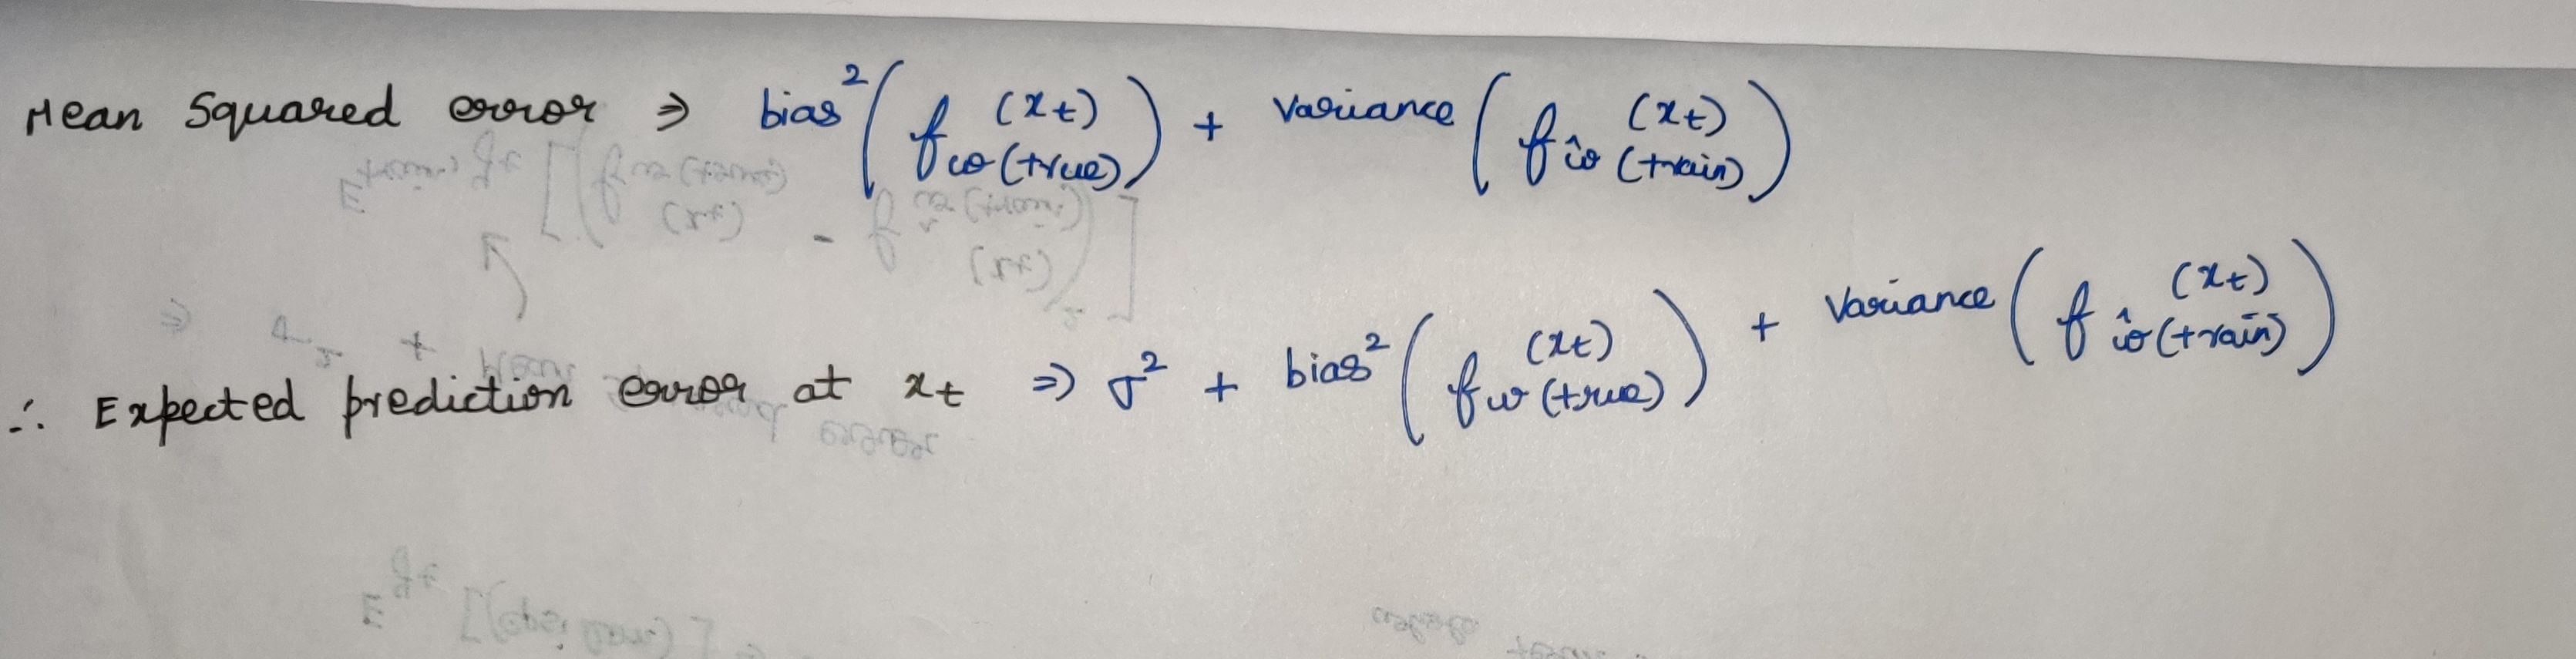 Mean Squared error ⇒ bias² ( f_w(true) (x_t) ) + Variance ( f_ŵ(train) (x_t) )
∴ Expected prediction error at x_t ⇒ σ² + bias² ( f_w(true) (x_t) ) + Variance ( f_ŵ(train) (x_t) )